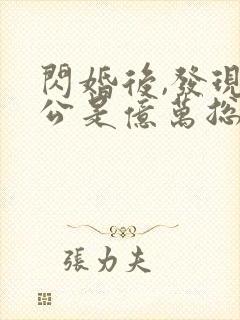 閃婚後,發現
公是億萬總
張力夫